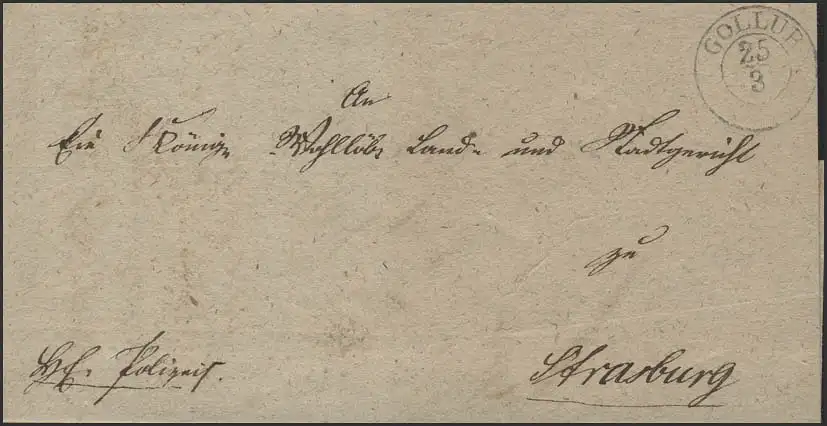 GOLLUB
25
3
An
Ein Königl. Wohllöbl. Land- und Stadtgericht
zu
Strasburg
Polizeis.